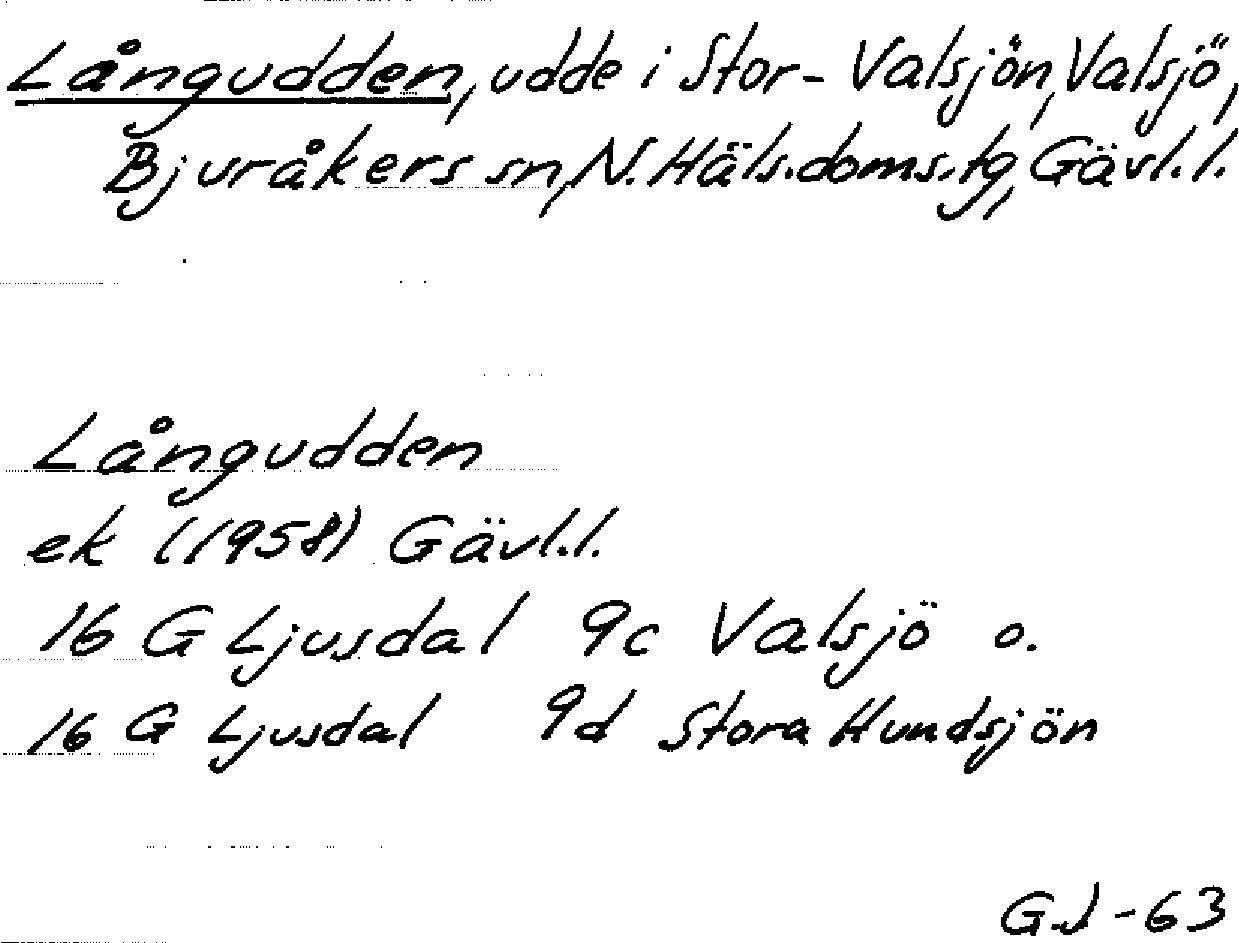 Långudden, udde i Stor-Valsjön, Valsjö,
Bjuråkers sn, N. Häls.doms.tg, Gävl.l.
Långudden
ek (1958) Gävl.l.
16 G Ljusdal 9c Valsjö o.
16 G Ljusdal 9d Stora Hundsjön
G.J-63